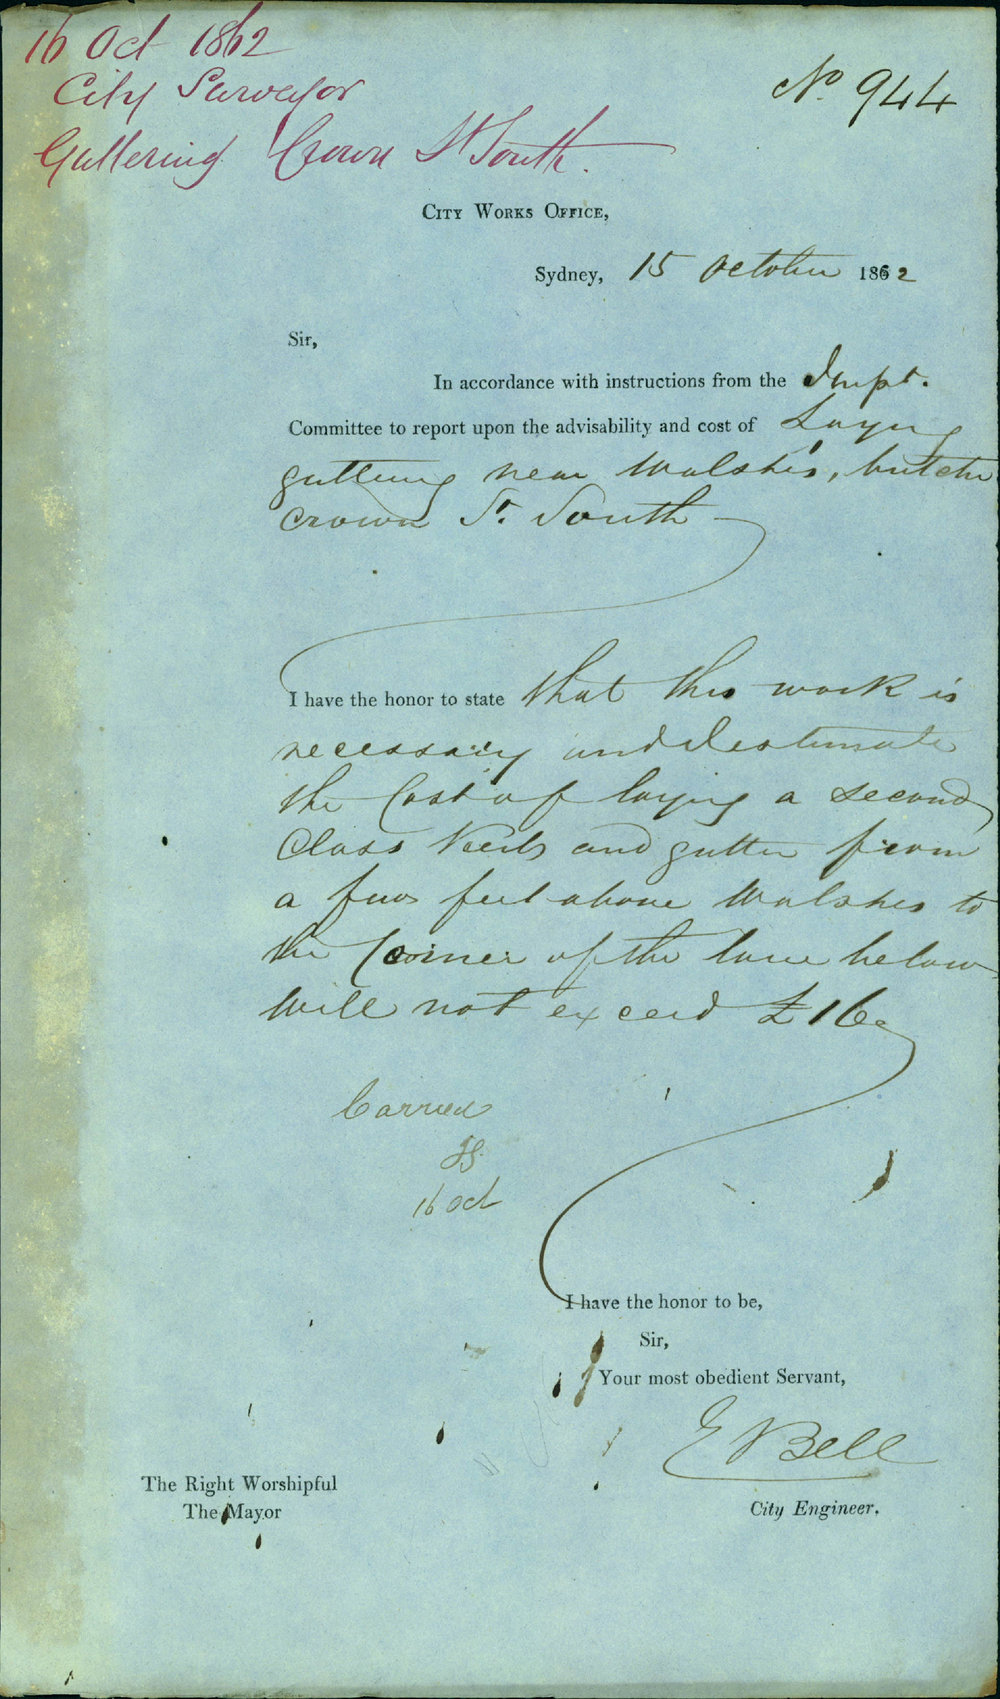 16 Oct 1862
City Surveyor
Guttering Crown St South.
No 944
City Works Office,
Sydney, 15 October 1862
Sir,
In accordance with instructions from the Impt.
Committee to report upon the advisability and cost of Laying
guttering near Walshe's, butcher
Crown St. South
I have the honor to state that this work is
necessary and I estimate
the Cost of laying a second
Class Kerb and gutter from
a few feet above Walshes to
the Corner of the lane below
will not exceed £16
Carried
16 Oct
I have the honor to be,
Sir,
Your most obedient Servant,
E Bell
City Engineer.
The Right Worshipful
The Mayor